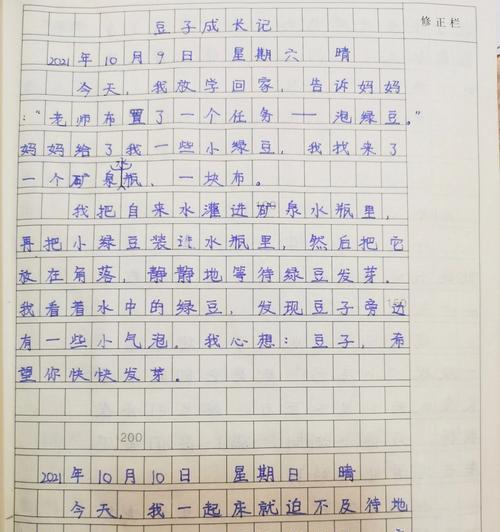 豆子成长记
修正栏
2021年10月9日 星期六 晴
今天，我放学回家，告诉妈妈
：“老师布置了一个任务——泡绿豆。”
妈妈给了我一些小绿豆，我找来了
一个矿泉水瓶、一块布。
我把自来水灌进矿泉水瓶里，
再把小绿豆装进水瓶里，然后把它
放在角落，静静地等待绿豆发芽。
我看着水中的绿豆，发现豆子旁边
150
有一些小气泡，我心想：豆子，希
望你快快发芽。
200
2021年10月10日 星期日 晴
今天，我一起床就迫不及待地